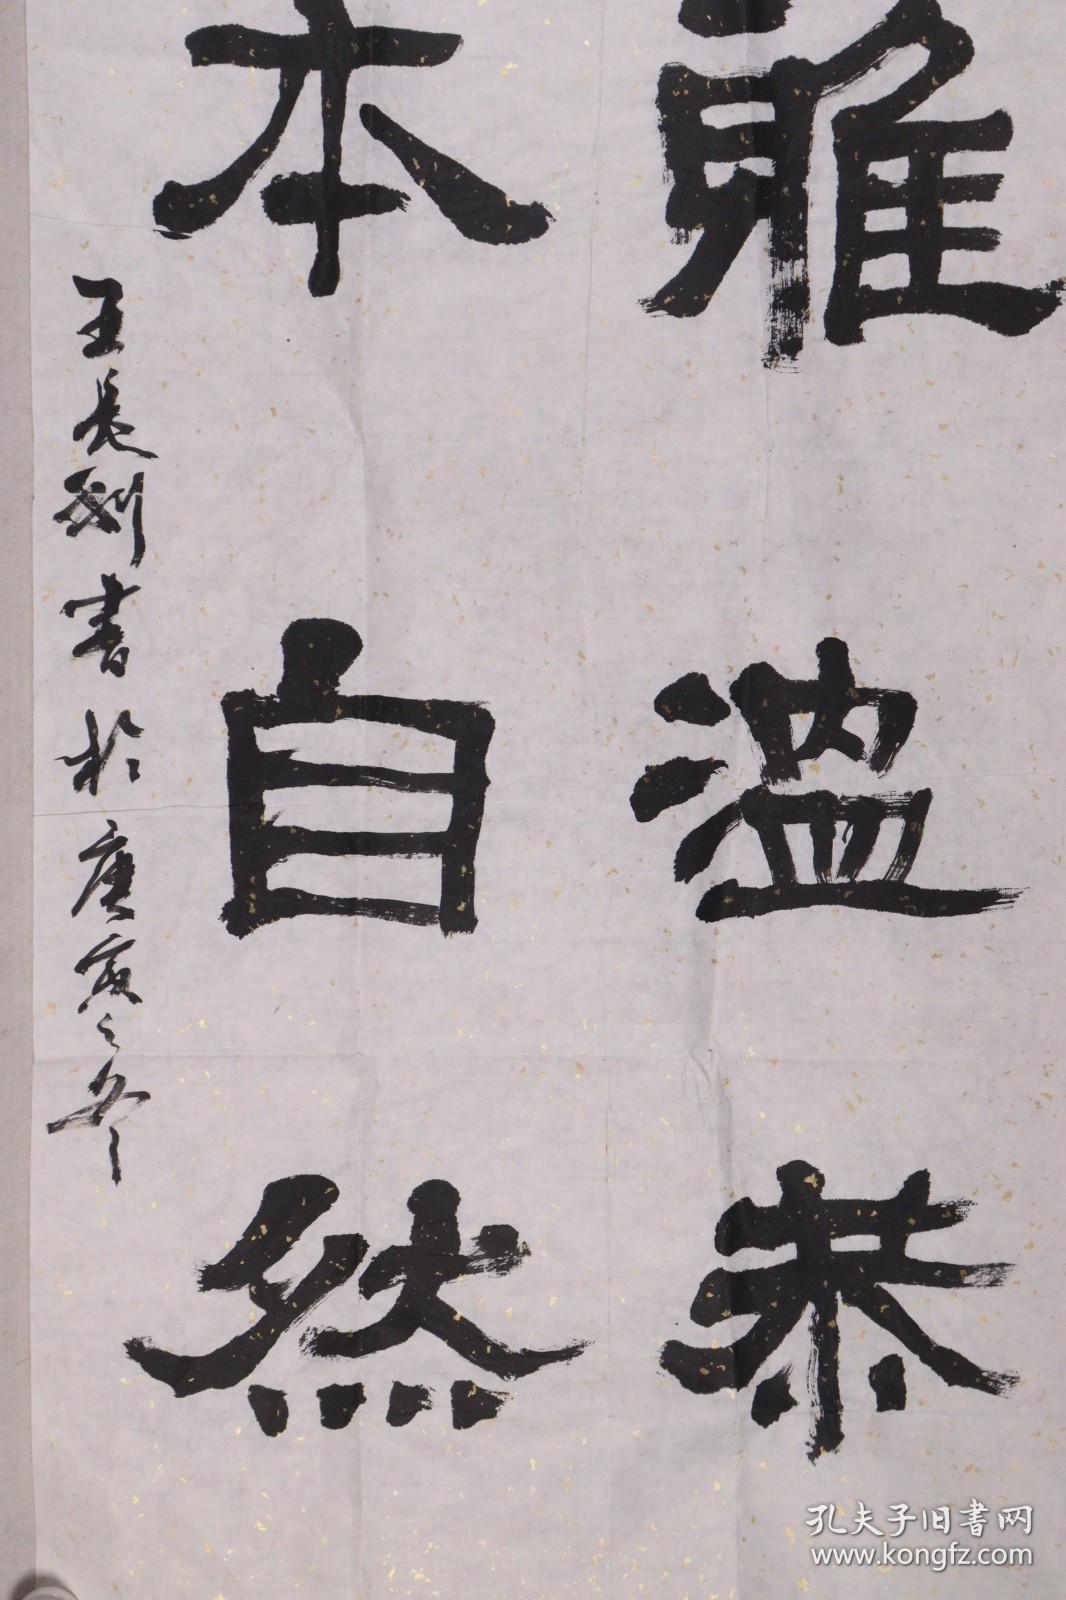 雅温恭
本自然
王長剛書於庚寅之冬
孔夫子旧書网
www.kongfz.com